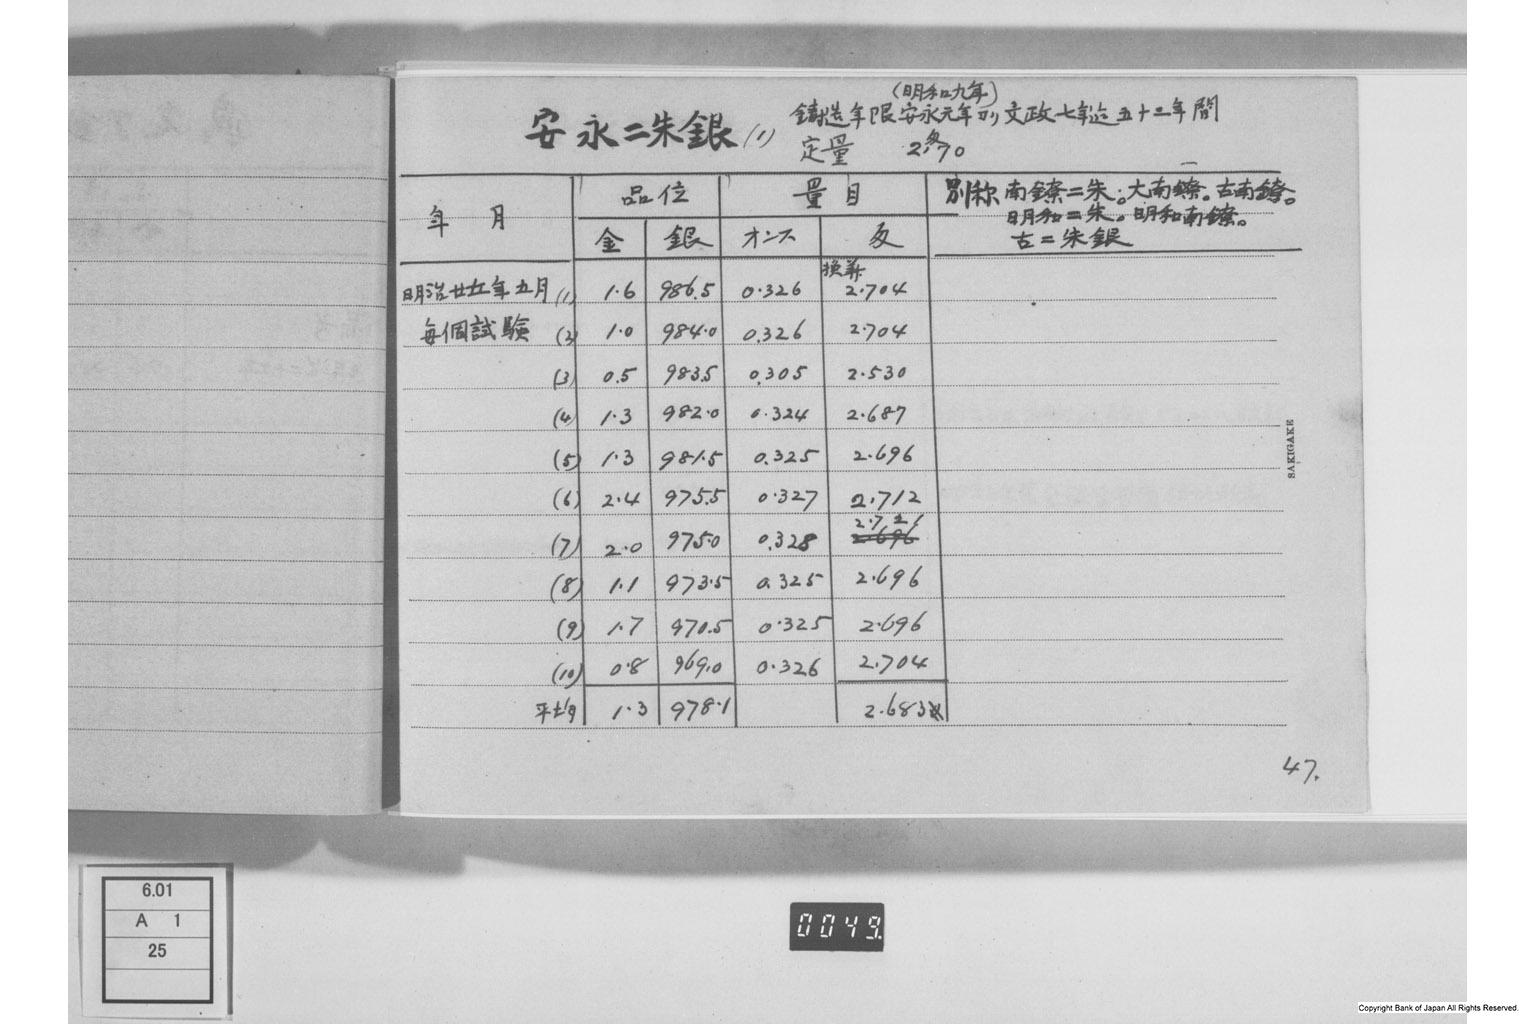 (明和九年)
安永二朱銀(1)
鋳造年限安永元年ヨリ文政七年迄五十三年間
定量 2.匁70
年月 品位 量目
金 銀 オンス 匁
別称 南鐐二朱。大南鐐。古南鐐。
明和二朱。明和南鐐。
古二朱銀
換算
明治廿五年五月 (1) 1.6 986.5 0.326 2.704
毎個試験 (2) 1.0 984.0 0.326 2.704
(3) 0.5 983.5 0.305 2.530
(4) 1.3 982.0 0.324 2.687
(5) 1.3 981.5 0.325 2.696
(6) 2.4 975.5 0.327 2.712
2.721
(7) 2.0 975.0 0.328 2.696
(8) 1.1 973.5 0.325 2.696
(9) 1.7 970.5 0.325 2.696
(10) 0.8 969.0 0.326 2.704
平均 1.3 978.1 2.683
47.
SAKIGAKE
6.01
A 1
25
0049
Copyright Bank of Japan All Rights Reserved.